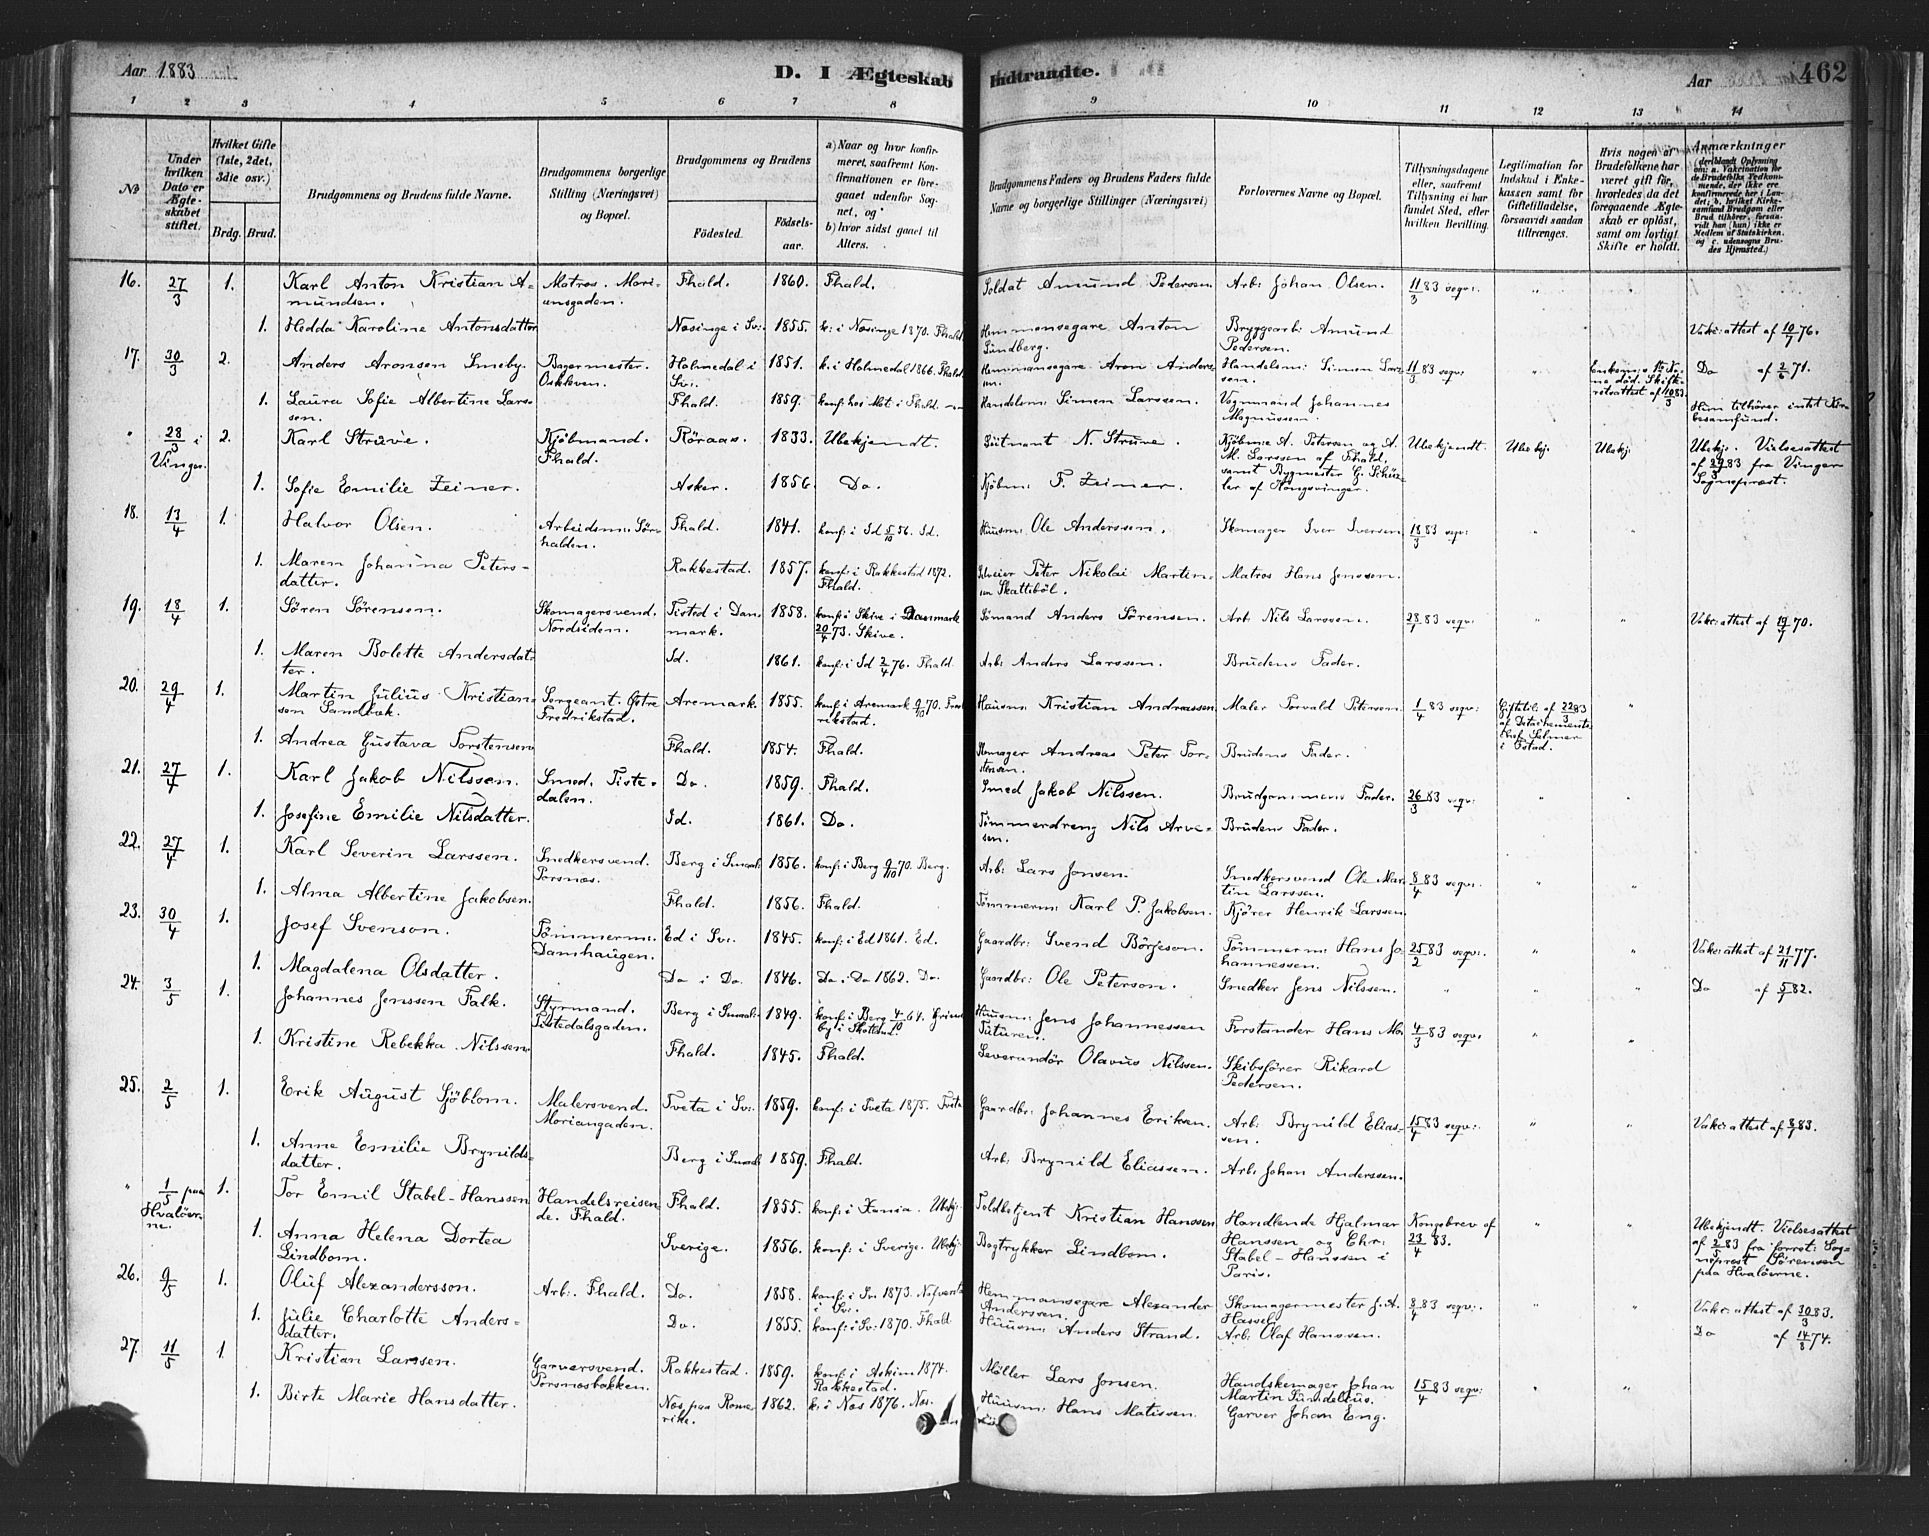 Aar 1883
D. I Ægteskab Indtraadte.
Aar
462
1 2 3 4 5 6 7 8 9 10 11 12 13 14
No
Under hvilken Dato er Ægteskabet stiftet.
Hvilket Gifte (1ste, 2det, 3die osv.)
Brdg. Brud.
Brudgommens og Brudens fulde Navne.
Brudgommens borgerlige Stilling (Næringsvei) og Bopæl.
Brudgommens og Brudens
Fødested.
Fødselsaar.
a) Naar og hvor konfirmeret, saafremt Konfirmationen er foregaaet udenfor Sognet, og
b) hvor sidst gaaet til Alters.
Brudgommens Faders og Brudens Faders fulde Navne og borgerlige Stillinger (Næringsvei)
Forlovernes Navne og Bopæl.
Tillysningsdagene eller, saafremt Tillysning ei har fundet Sted, efter hvilken Bevilling.
Legitimation for Indskud i Enkekassen samt for Giftetilladelse, forsaavidt saadan tiltrænges.
Hvis nogen af Brudefolkene har været gift før, hvorledes da det foregaaende Ægteskab er opløst, samt om lovligt Skifte er holdt.
Anmærkninger
(deriblandt Oplysning om: a. Vaccination for de Brudefolks Vedkommende, der ikke ere konfirmerede her i Landet; b. hvilket Kirkesamfund Brudgom eller Brud tilhører, forsaavidt han (hun) ikke er Medlem af Statskirken, og c. udensogns Brudes Hjemsted.)
16. 27/3 1. Karl Anton Kristian Amundsen. Matros. Moriansgaden. Fhald. 1860. Fhald. Soldat Amund Pedersen. Arb: Johan Olsen. 11/3 83 seqv: "
1. Hedda Karoline Antonsdatter Næsinge i Sv: 1855. k: i Næsinge 1870. Fhald. Hemmansegare Anton Lundberg. Bryggearb: Amund Pedersen. Vakc: attest af 10/7 76.
17. 30/3 2. Anders Aronsen Smeby. Bagermester. Oskleven. Holmedal i Sv: 1851. k. i Holmedal 1866. Fhald. Hemmansegare Aron Andersen. Handelsm: Simon Larssen. 11/3 83 seqv: " Do af 2/6 71.
1. Laura Sofie Albertine Larssen. Fhald. 1859. konf: hos Met: i Fhald. Handelsm: Simon Larssen. Vognmand Johannes Magnussen Hun tilhører intet Kirkesamfund.
" 28/3 i Vinger. 2. Karl Struve. Kjøbmand. Fhald. Røraas. 1833. Ubekjendt. Løitnant N. Struve. Kjøbm: A. Petersen og A. M. Larssen af Fhald, samt Bygmester G. Schüzler af Kongsvinger. Ubekjendt. Ubekj. Ubekj. Ubekj. Vielsesattest af 29/3 83 fra Vinger Sognepræst.
1. Sofie Emilie Zeiner. Asker. 1856. Do. Kjøbm: F. Zeiner.
18. 13/4 1. Halvor Olsen. Arbeidsm: Sørhalden. Fhald. 1841. konf: i Id 5/10 56. Id. Huusm: Ole Anderssen. Skomager Iver Iversen 18/3 83 seqv: " "
1. Maren Johanna Petersdatter. Rakkestad. 1857. konf: i Rakkestad 1872. Fhald. Selveier Peter Nikolai Martinsen Skattebøl. Matros Hans Jenssen.
19. 18/4 1. Søren Sørensen. Skomagersvend. Nordsiden. Tisted i Danmark. 1858. konf: i Skive i Danmark 20/4 73. Skive. Sømand Anders Sørensen. Arb: Nils Larssen. 28/1 83 seqv: " " Vakc: attest af 19/7 70.
1. Maren Bolette Andersdatter. Id. 1861. konf: i Id 2/4 76. Fhald. Arb: Anders Larssen. Brudens Fader.
20. 29/4 1. Martin Julius Kristiansen Sandbæk. Sergeant. Østre Fredrikstad. Aremark. 1855. konf: i Aremark 9/10 70. Fredrikstad. Huusm: Kristian Andreassen. Maler Torvald Petersen. 1/4 83 seqv: Giftetil: af 22/3 83 af Detachementschef Selmer i Fstad. "
1. Andrea Gustava Torstensen Fhald. 1854. Fhald. Skomager Andreas Peter Torstensen. Brudens Fader.
21. 27/4 1. Karl Jakob Nilssen. Smed. Tistedalen. Do. 1859. Fhald. Smed Jakob Nilssen. Brudgommens Fader. 26/3 83 seqv: " "
1. Josefine Emilie Nilsdatter. Id. 1861. Do. Tømmerdreng Nils Arvesen. Brudens Fader.
22. 27/4 1. Karl Severin Larssen. Snedkersvend. Porsnæs. Berg i Smaal: 1856. konf: i Berg 9/10 70. Berg. Arb: Lars Jonsen. Snedkersvend Ole Martin Larssen. 8/4 83 seqv: " "
1. Alma Albertine Jakobsen. Fhald. 1856. Fhald. Tømmerm: Karl P. Jakobsen. Kjører Henrik Larssen.
23. 30/4 1. Josef Svenson. Tømmerm: Damhaugen. Ed i Sv: 1845. konf: i Ed 1861. Ed. Gaardbr: Svend Börjeson. Tømmerm: Hans Johannessen. 25/2 83 seqv: " " Vakc: attest af 21/11 77.
1. Magdalena Olsdatter. Do i Do. 1846. Do i Do 1862. Do. Gaardbr: Ole Peterson. Snedker Jens Nilssen. " " Do af 5/7 82.
24. 3/5 1. Johannes Jenssen Falk. Styrmand. Tistedalsgaden. Berg i Smaal: 1849. konf: i Berg 4/10 64. by i Huusm: Jens Johannessen Forstander Hans Moe 4/3 83 seqv: " "
1. Kristine Rebekka Nilssen Fhald. 1845. Fhald. Leverandør Olavus Nilssen. Skibsfører Rikard Pedersen.
25. 2/5 1. Erik August Sjöblom. Malersvend. Moriangaden. Tveta i Sv: 1859. konf: i Tveta 1875. Tveta Gaardbr: Johannes Eriksen. Arb: Brynild Eliassen. 15/4 83 seqv: " " Vakc: attest af 8/1 83.
1. Anne Emilie Brynildsdatter. Berg i Smaal: 1859. Fhald. Arb: Brynild Eliassen. Arb: Johan Anderssen.
" 1/5 paa Hvaløerne. 1. Tor Emil Stabel-Hanssen Handelsreisende. Fhald. Fhald. 1855. konf: i Xania. Ubekj: Toldbetjent Kristian Hanssen Handlende Hjalmar Hanssen og Chr: Stabel-Hanssen i Paris. Kongebrev af 23/4 83. " " Ubekjendt. Vielsesattest af 2/5 83 fra forret: Sognepræst Sørensen paa Hvaløerne.
1. Anna Helena Dortea Lindbom. Sverige. 1856. konf: i Sverige. Ubekj: Bogtrykker Lindbom.
26. 9/5 1. Oluf Alexandersson. Arb: Fhald. Do. 1858. konf: i Sv. 1873. i Sv: Hemmansegare Alexander Anderssen. Skomagermester J. A. Hassel. 8/4 83 seqv: " " Vakc: attest af 30/3 83.
1. Julie Charlotte Andersdatter. Do. 1855. konf: i Sv: 1870. Fhald. Huusm: Anders Strand. Arb: Olaf Hanssen. Do af 14/8 74.
27. 11/5 1. Kristian Larssen. Garversvend. Porsnæsbakken. Rakkestad. 1859. konf: i Askim 1874. Rakkestad. Møller Lars Jonsen. Handskemager Johan Martin Sundelius. 15/4 83 seqv: " "
1. Birte Marie Hansdatter. Næs paa Romerike. 1862. k: i Næs 1876. Næs. Huusm: Hans Matissen. Garver Johan Eng.